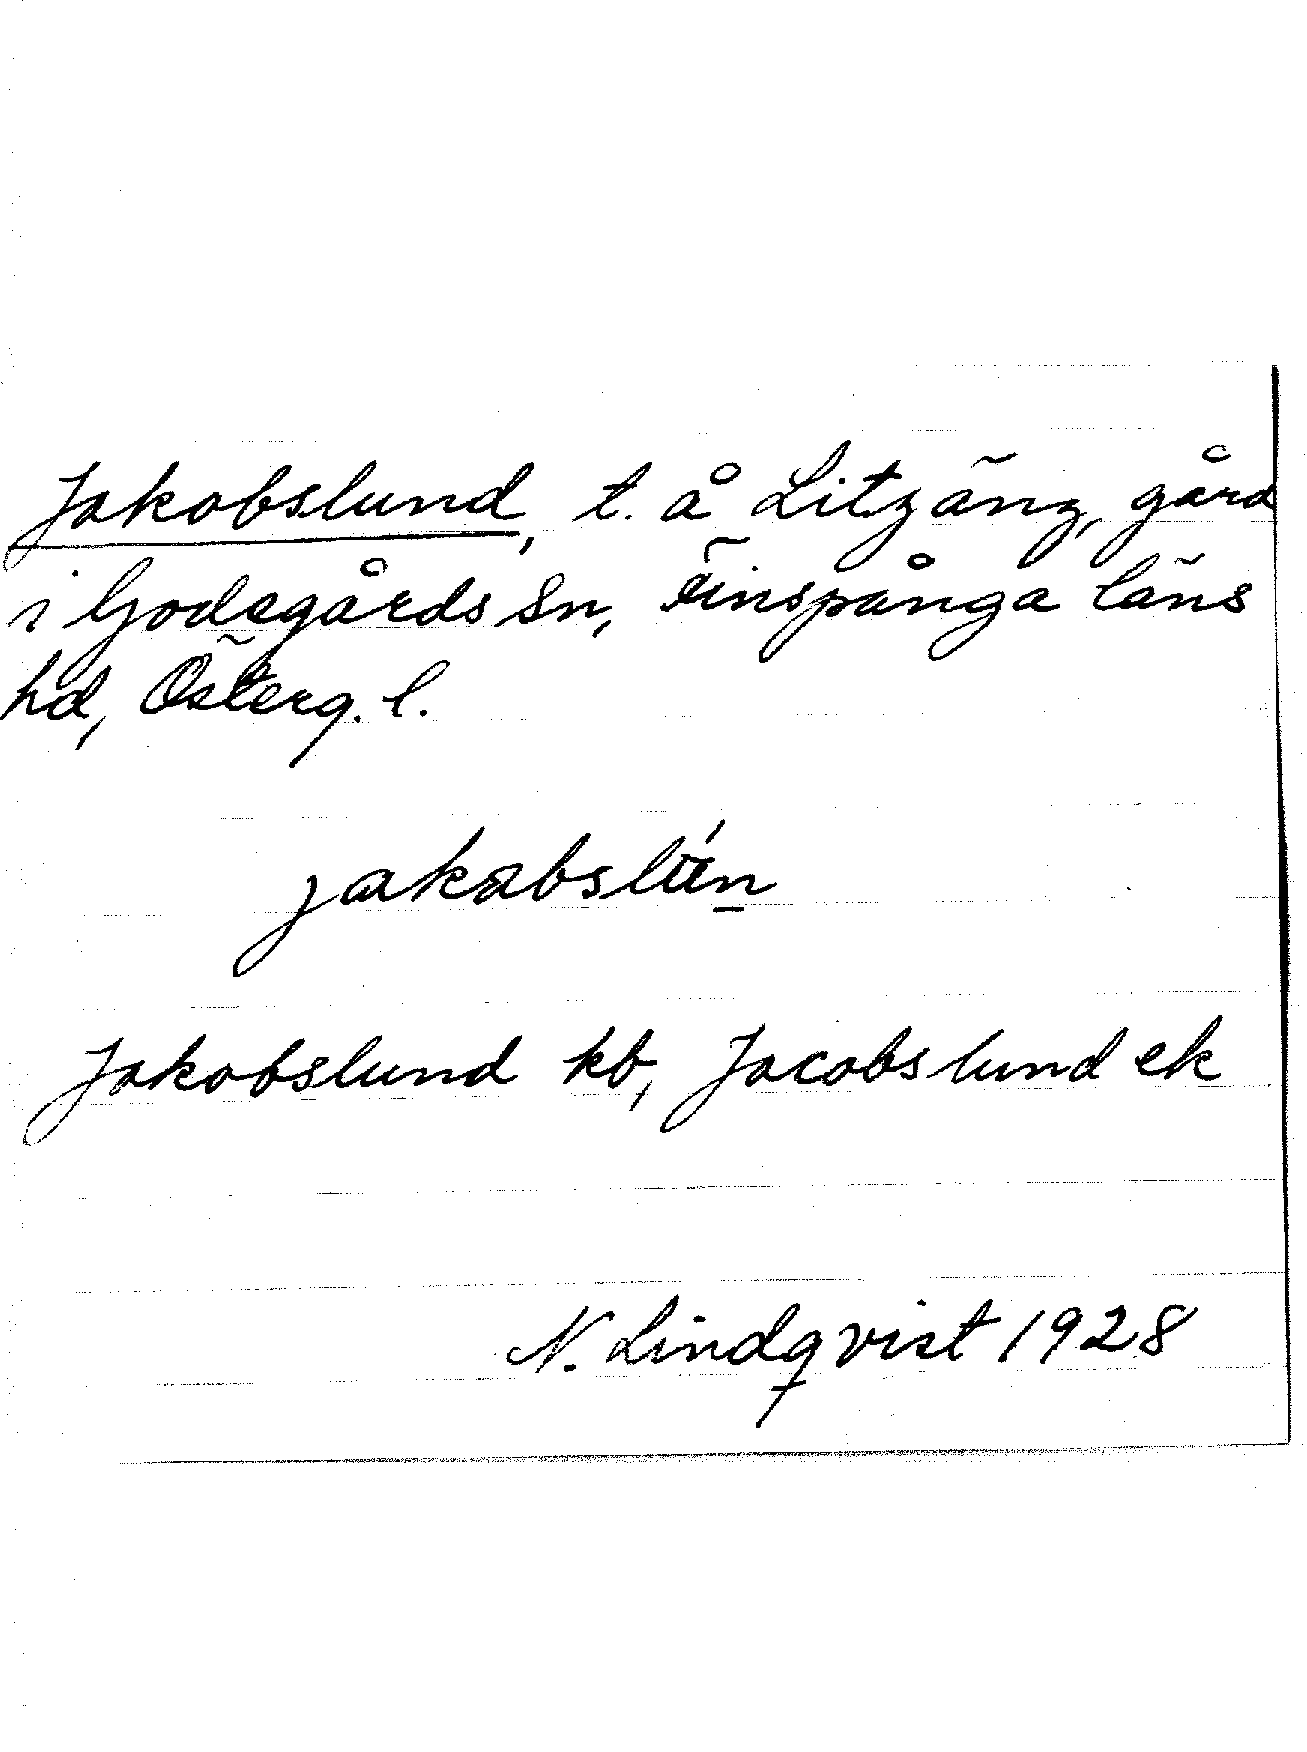 Jakobslund, t. å Litzäng, gård
i Godegårds sn, Finspånga läns
hd, Österg. l.
jakɑbslun
Jakobslund kb, Jacobslund ek
N. Lindqvist 1928